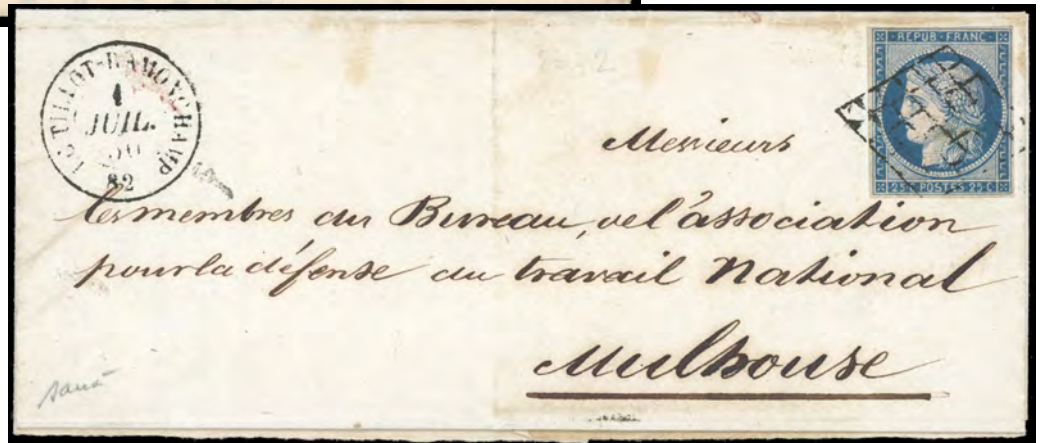 LE TILLOT-RAMONCHAMP
1
JUIL.
50
82
REPUB·FRANC
25C POSTES 25C
Messieurs
les membres du Bureau, de l'association
pour la défense du travail National
Mulhouse